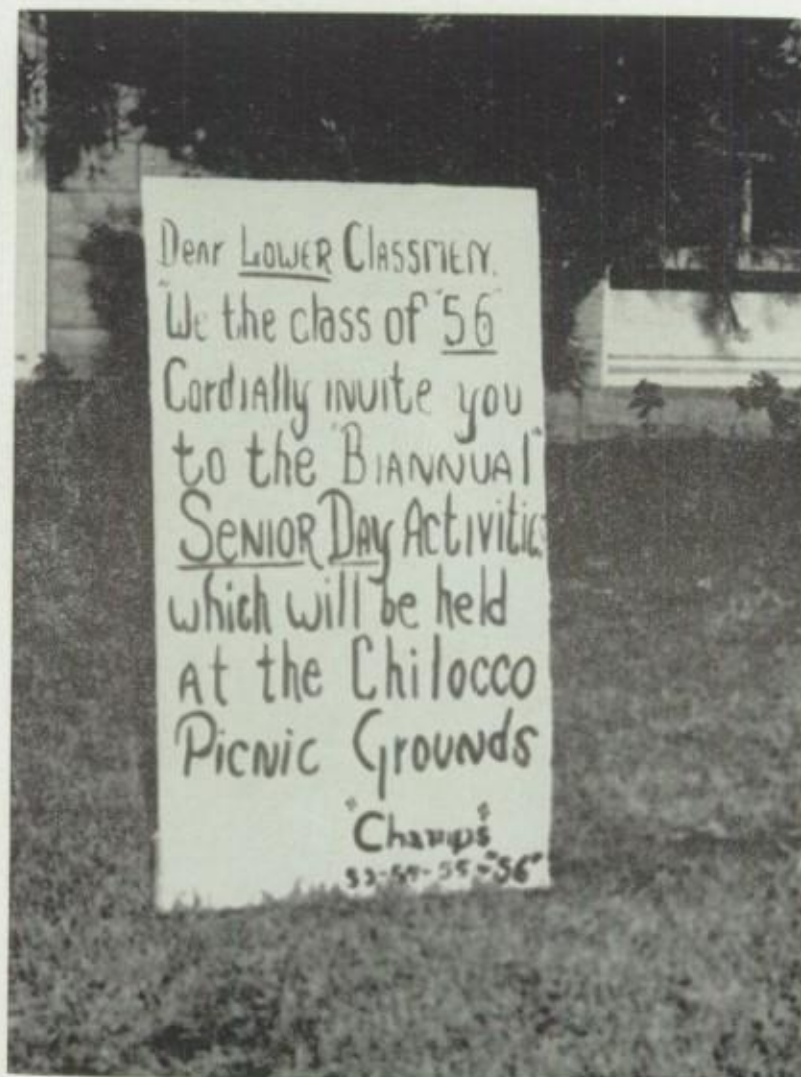 Dear LOWER Classmen.
"We the class of "56"
Cordially invite you
to the "Biannual"
Senior Day Activities
which will be held
at the Chilocco
Picnic Grounds
"Champs"
53-54-55-"56"